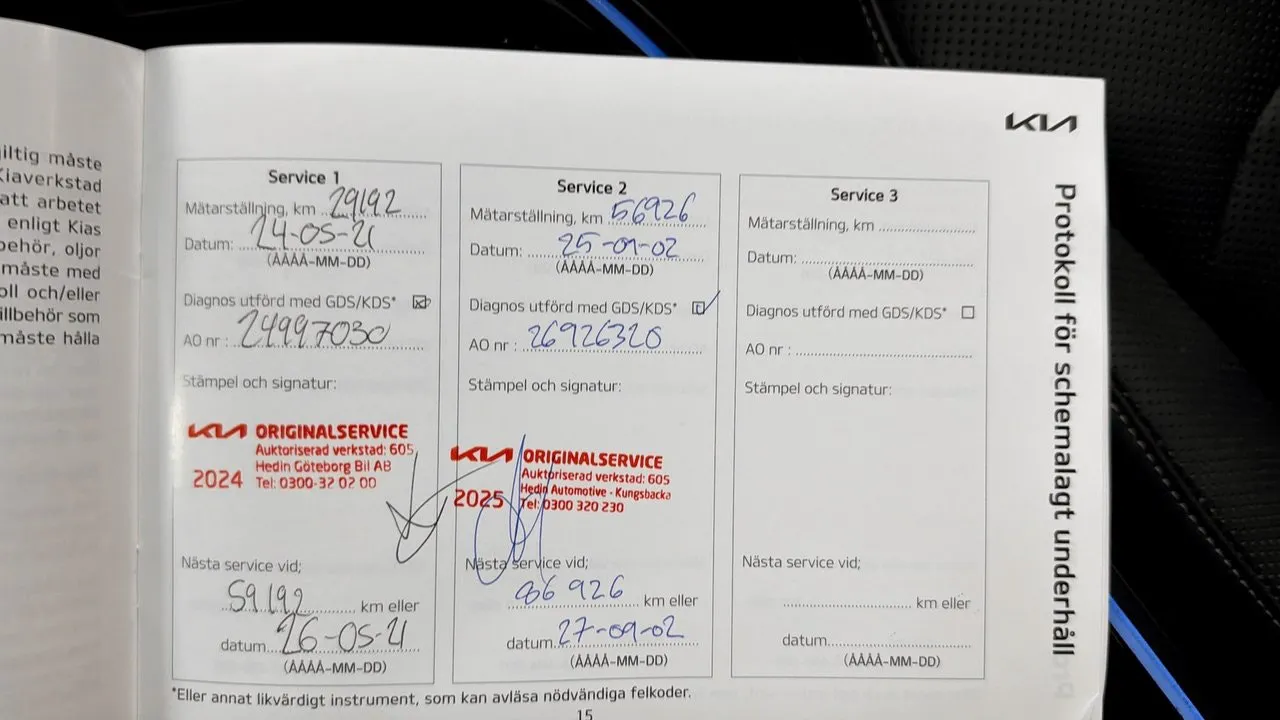 iltig måste
Kiaverkstad
att arbetet
enligt Kias
behör, oljor
måste med
oll och/eller
illbehör som
måste hålla
KIA
Protokoll för schemalagt underhåll
Service 1
Mätarställning, km 29192
Datum: 24-05-21
(ÅÅÅÅ-MM-DD)
Diagnos utförd med GDS/KDS*
AO nr : 24997030
Stämpel och signatur:
KIA ORIGINALSERVICE
Auktoriserad verkstad: 605
Hedin Göteborg Bil AB
2024 Tel: 0300-32 02 00
Nästa service vid;
59192 km eller
datum 26-05-21
(ÅÅÅÅ-MM-DD)
Service 2
Mätarställning, km 56926
Datum: 25-09-02
(ÅÅÅÅ-MM-DD)
Diagnos utförd med GDS/KDS*
AO nr : 26926320
Stämpel och signatur:
KIA ORIGINALSERVICE
Auktoriserad verkstad: 605
Hedin Automotive - Kungsbacka
2025 Tel: 0300 320 230
Nästa service vid;
86 926 km eller
datum 27-09-02
(ÅÅÅÅ-MM-DD)
Service 3
Mätarställning, km
Datum:
(ÅÅÅÅ-MM-DD)
Diagnos utförd med GDS/KDS*
AO nr :
Stämpel och signatur:
Nästa service vid;
km eller
datum
(ÅÅÅÅ-MM-DD)
*Eller annat likvärdigt instrument, som kan avläsa nödvändiga felkoder.
15